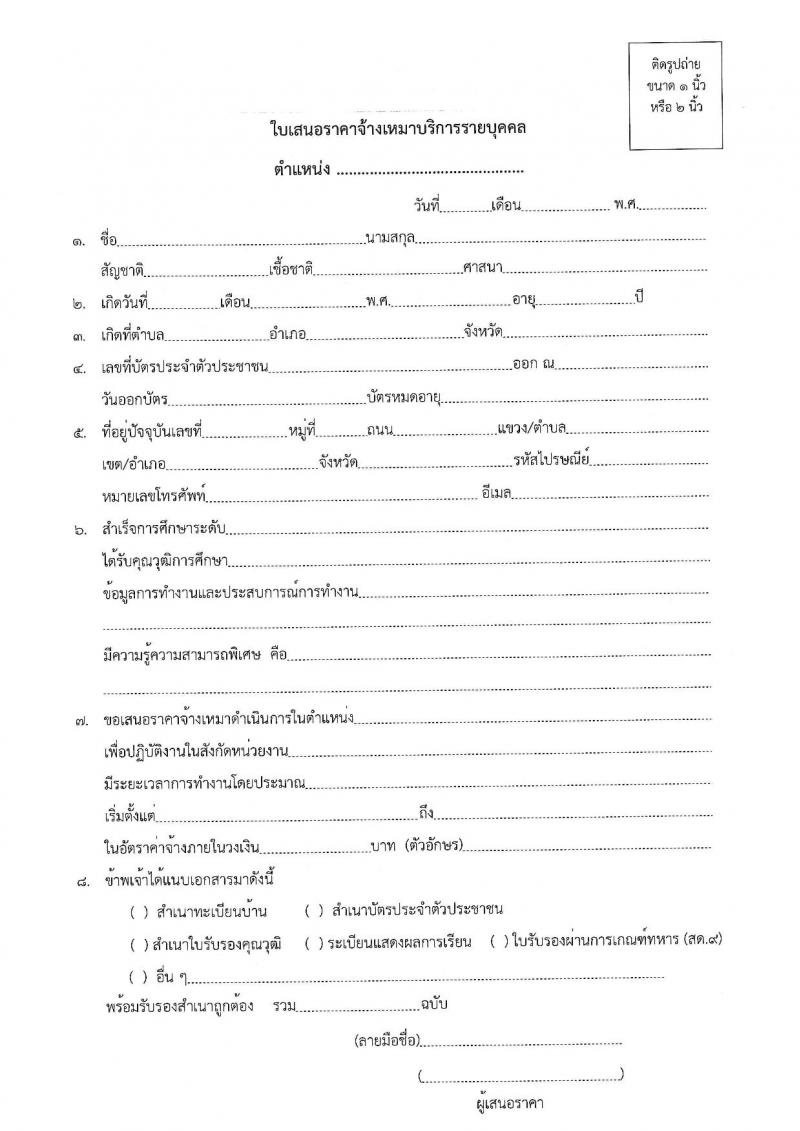 ติดรูปถ่าย
ขนาด ๑ นิ้ว
หรือ ๒ นิ้ว
ใบเสนอราคาจ้างเหมาบริการรายบุคคล
ตำแหน่ง ..............................................
วันที่.............เดือน...................... พ.ศ.................
๑. ชื่อ..............................................................นามสกุล.........................................................................
สัญชาติ...............................เชื้อชาติ......................................ศาสนา...................................................
๒. เกิดวันที่..................เดือน.............................พ.ศ............................... อายุ.........................ปี
๓. เกิดที่ตำบล..........................อำเภอ.......................................จังหวัด....................................................
๔. เลขที่บัตรประจำตัวประชาชน.............................................................ออก ณ.......................................
วันออกบัตร..................................................บัตรหมดอายุ...................................................................
๕. ที่อยู่ปัจจุบันเลขที่..................... หมู่ที่.............ถนน..........................แขวง/ตำบล....................................
เขต/อำเภอ......................................จังหวัด.......................................รหัสไปรษณีย์..............................
หมายเลขโทรศัพท์.................................................................... อีเมล..................................................
๖. สำเร็จการศึกษาระดับ.........................................................................................................................
ได้รับคุณวุฒิการศึกษา.........................................................................................................................
ข้อมูลการทำงานและประสบการณ์การทำงาน........................................................................................
........................................................................................................................................................
มีความรู้ความสามารถพิเศษ คือ..........................................................................................................
........................................................................................................................................................
๗. ขอเสนอราคาจ้างเหมาดำเนินการในตำแหน่ง.........................................................................................
เพื่อปฏิบัติงานในสังกัดหน่วยงาน..........................................................................................................
มีระยะเวลาการทำงานโดยประมาณ......................................................................................................
เริ่มตั้งแต่..................................................................ถึง.....................................................................
ในอัตราค่าจ้างภายในวงเงิน............................บาท (ตัวอักษร)..............................................................
๘. ข้าพเจ้าได้แนบเอกสารมาดังนี้
( ) สำเนาทะเบียนบ้าน ( ) สำเนาบัตรประจำตัวประชาชน
( ) สำเนาใบรับรองคุณวุฒิ ( ) ระเบียนแสดงผลการเรียน ( ) ใบรับรองผ่านการเกณฑ์ทหาร (สด.๙)
( ) อื่น ๆ........................................................................................................................
พร้อมรับรองสำเนาถูกต้อง รวม...............................ฉบับ
(ลายมือชื่อ)...................................................
(..................................................)
ผู้เสนอราคา